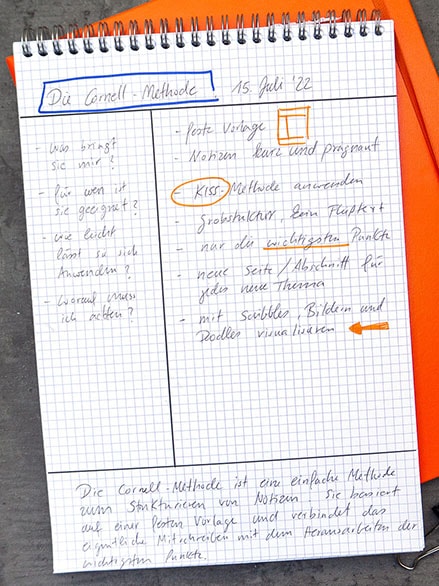 Die Cornell-Methode 15. Juli '22
- was bringt
sie mir?
- für wen ist
sie geeignet?
- wie leicht
lässt sie sich
Anwenden?
- worauf muss
ich achten?
- feste Vorlage
- Notizen kurz und prägnant
- KISS-Methode anwenden
- Grobstruktur, kein Fließtext
- nur die wichtigsten Punkte
- neue Seite/Abschnitt für
jedes neue Thema
- mit Scribbles, Bildern und
Dodles visualisieren
Die Cornell-Methode ist eine einfache Methode
zum Strukturieren von Notizen. Sie basiert
auf einer festen Vorlage und verbindet das
eigentliche Mitschreiben mit dem Herausarbeiten der
wichtigsten Punkte.